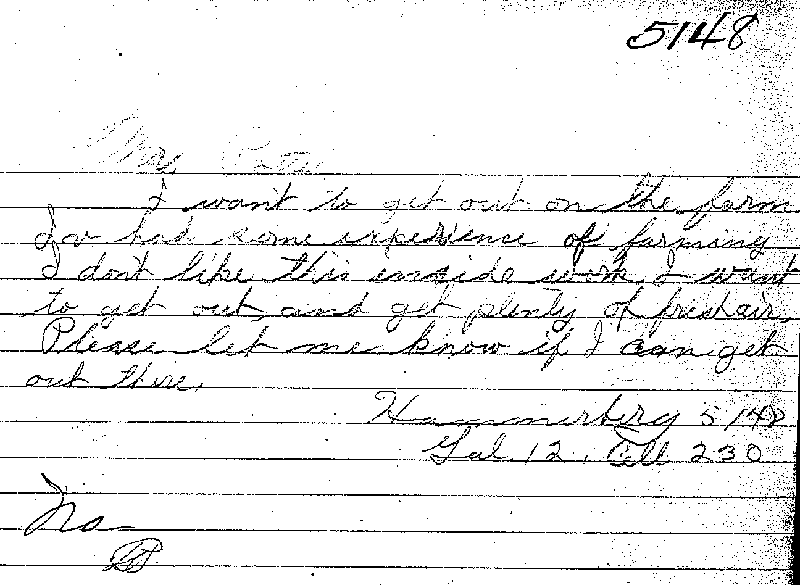 5148
I want to get out on the farm
Iv had some experience of farming
I dont like this inside work, I want
to get out, and get plenty of freshair,
Please let me know if I can get
out there,
Hammerberg 5148
Gal 12, Cell 230
No